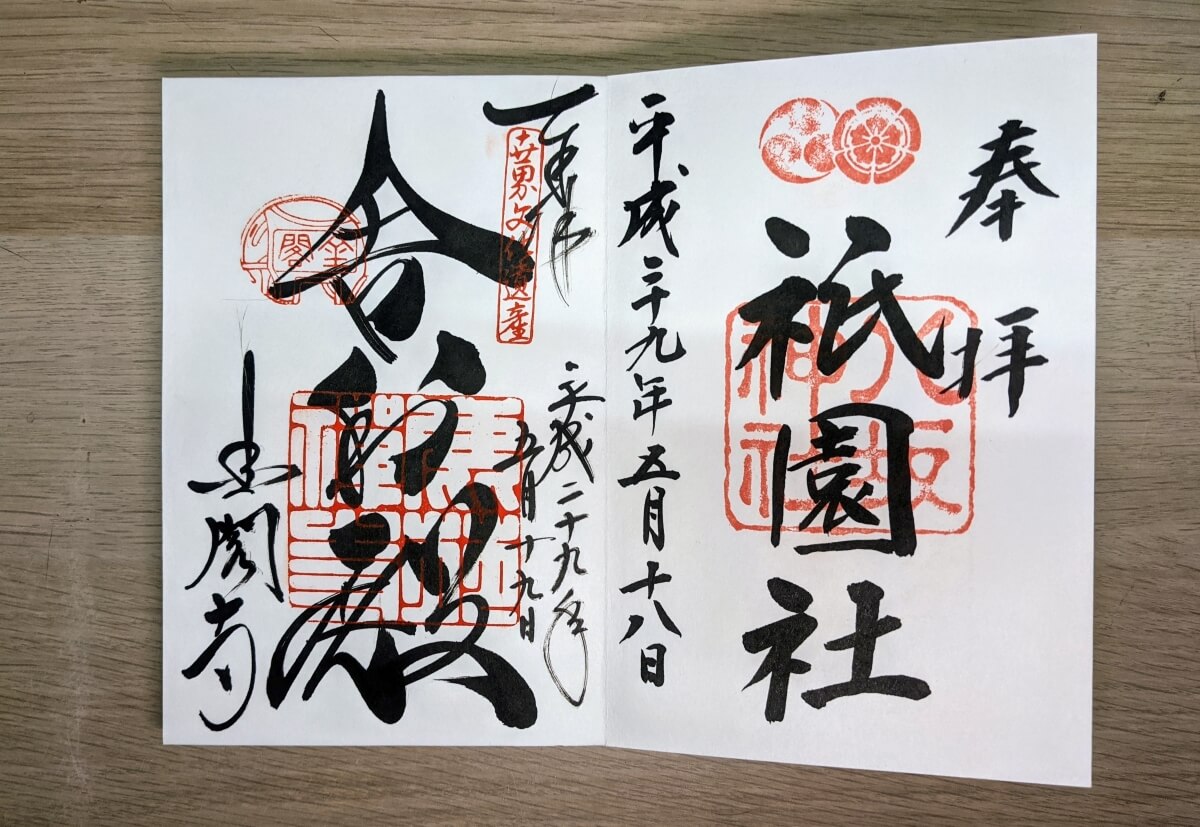 奉拝
祇園社
八坂神社
平成二十九年五月十八日
奉拝
世界文化遺産
平成二十九年
五月十九日
舎利殿
金閣
金閣寺